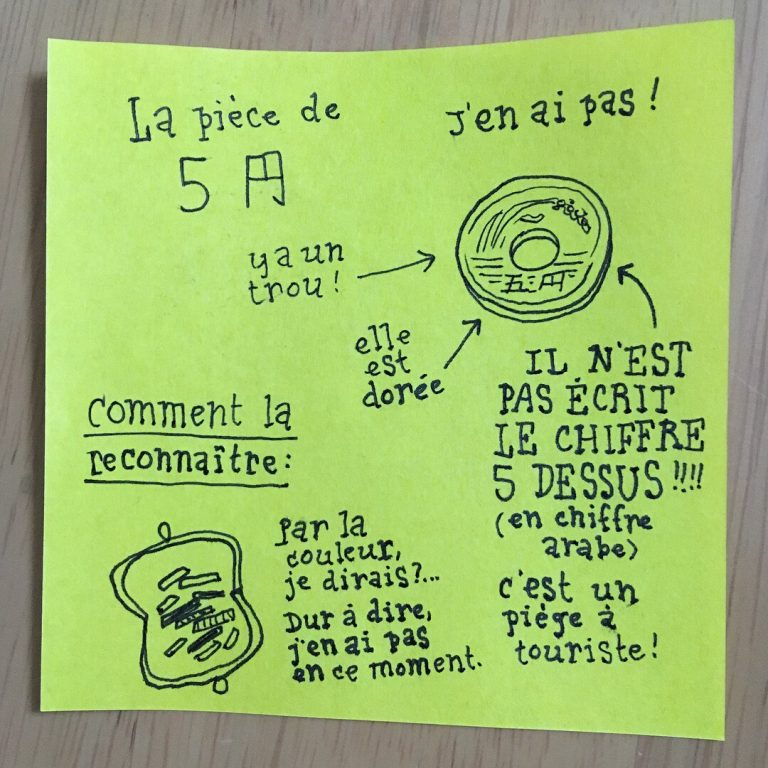 La pièce de
5 円
J'en ai pas !
y a un
trou !
五円
elle
est
dorée
IL N'EST
PAS ÉCRIT
LE CHIFFRE
5 DESSUS !!!!
(en chiffre
arabe)
c'est un
piège à
touriste !
Comment la
reconnaître :
Par la
couleur,
je dirais ?...
Dur à dire,
j'en ai pas
en ce moment.